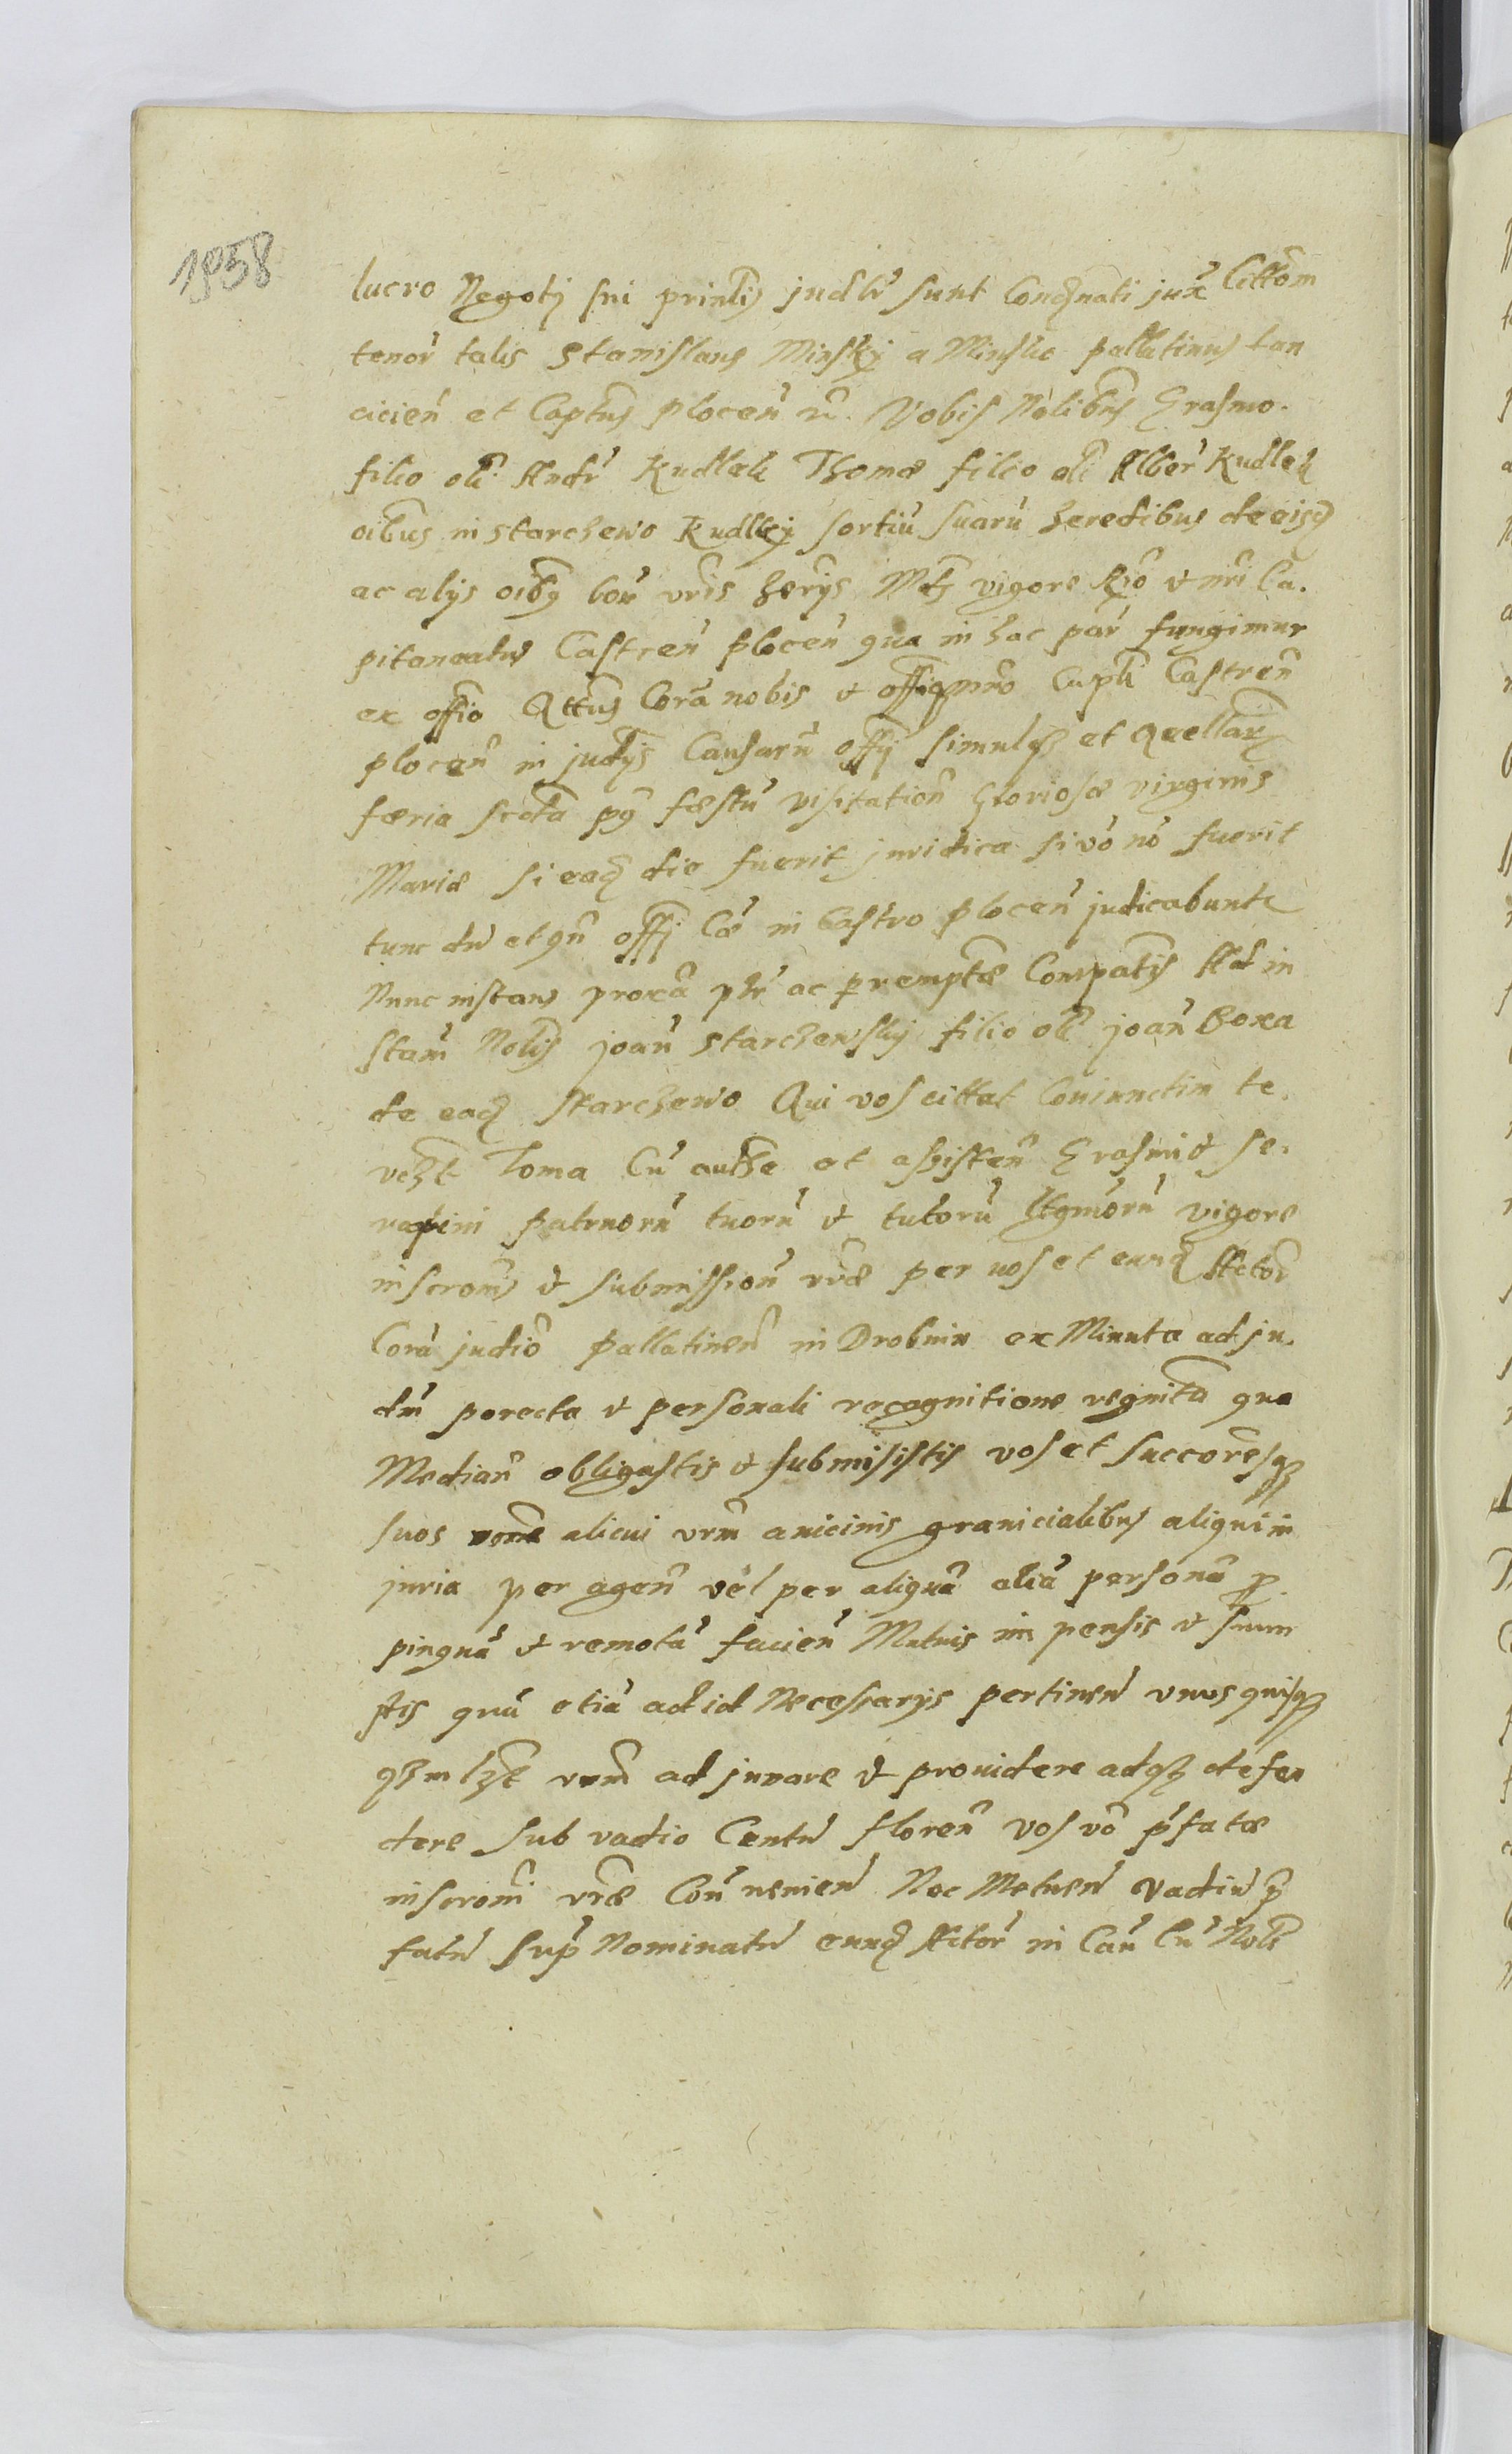 1958
lucro Negotÿ sui prinlis judlr sunt Condnati jux Cittom
tenor talis Stanislaus Minskÿ a Minsko pallatinus lan
cicien et Captus plocen rc. Vobis Nolibus Erasmo.
filio oli Andr Kudlek Thomæ filio oli Alber Kudlek
oibus in Starchewo Kudlkÿ sortiu suaru heredibus de eisd
ac alÿs oibus bon vris herÿs Mdo vigore Rio & nri Ca.
pitaneatus Castren plocen qua in hac par fungimur
ex offio Qttus Cora nobis & offioq nro Capli Castren
plocen in judÿs Causaru offÿ simulqz et Qrellarz
færia scda pq festu visitation Gloriosæ virginis
Mariæ si ead die fuerit juridica si vo no fuerit
tunc du et qn offÿ Cæ in Castro plocen judicabunt
Nunc instans proxa phr ac peremptæ Compatis Ad in
stam Nolis joan Starchewskÿ filio oli joan Boxa
de ead Starchewo Qui vos cittat Coniunctim te.
vezt Toma Cu authe et assisten Erasmi & Se.
rapini patruoru tuoru & tutoru vigore
inscrom & submission vræ per vos et eund Actor
Cora judio pallatinen in Drobnin ex Minuta ad ju.
dm porecta & personali recognitione regnita qua
Median obligastis & submisistis vos et succoresqz
suos alicui vrm a vicinis granicialibus aliqui in
juria per agen vel per aliqua alia persona pro
pinqua & remota facien Mutuis impensis & sum
ptis quu etia ad id Necessarÿs pertinen vnusquisqz
vrm adjuvare & providere adqz defen
dere sub vadio Centu floren vos vo pfatæ
inscrom vræ Con uenien Nec Metuen Vadiu p
fatu sup Nominatu eund Actor in Cau Cu Noli